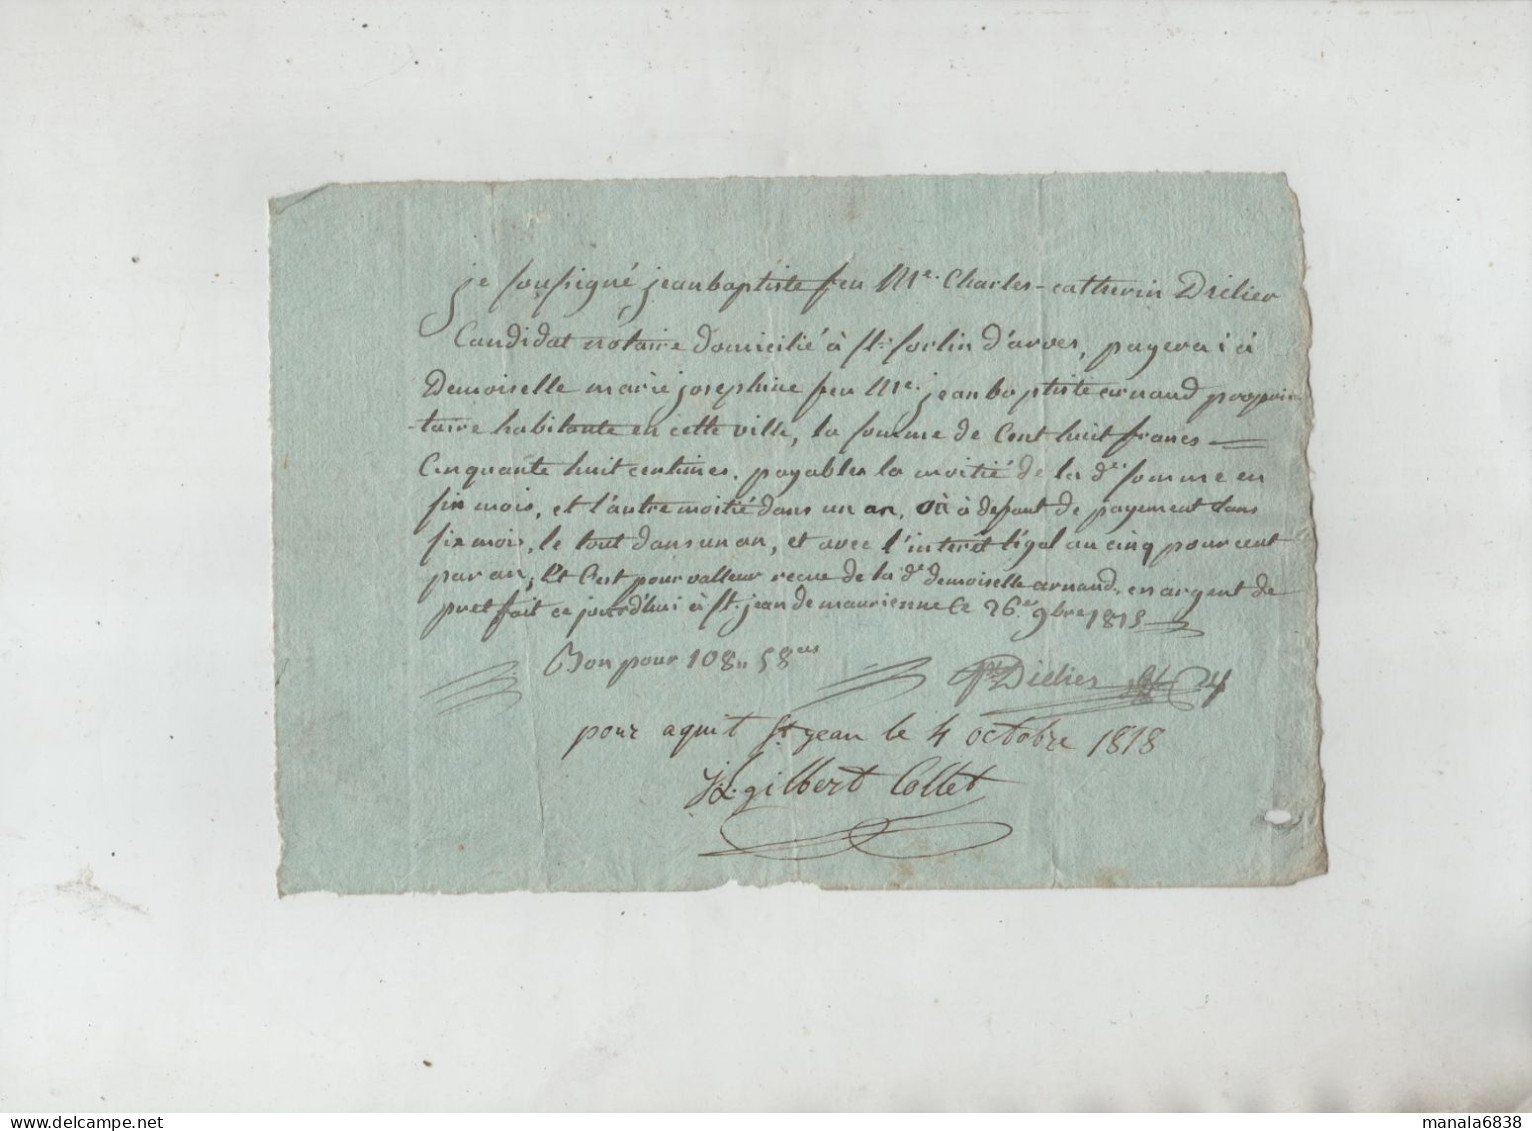 je soussigné jean baptiste feu Me. Charles-catherin Didier
Candidat notaire domicilié à St. Sorlin d'arves, payerai à
Demoiselle marie josephine feu Me. jean baptiste arnaud propriè-
-taire habitante en cette ville, la somme de Cent huit francs
Cinquante huit centimes, payables la moitié de la de. somme en
six mois, et l'autre moitié dans un an, où à defaut de payement dans
six mois, le tout dans un an, et avec l'interêt légal au cinq pour cent
par an; Et C'est pour valleur recue de la de demoiselle arnaud, en argent de
pret fait ce jourd'hui à St. jean de maurienne le 26 9bre 1815
Bon pour 108 „ 58 ces
Didier
pour aquit St jean le 4 octobre 1818
gilbert Collet
manala6838